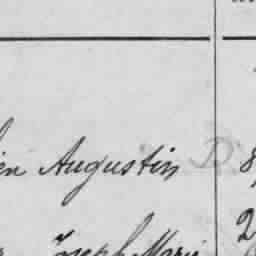 en Augustin D 8
Joseph Marie 2